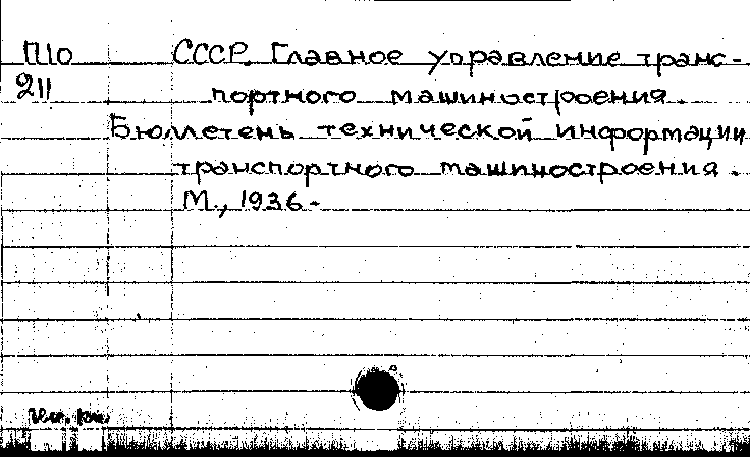 П10 СССР. Главное управление транс-
211 портного машиностроения.
Бюллетень технической информации
транспортного машиностроения.
М., 1936-